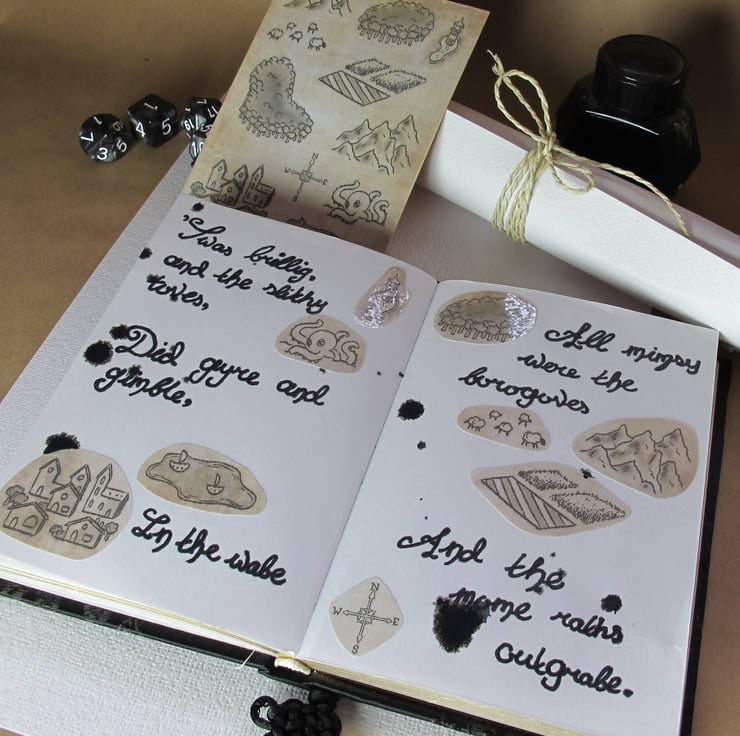 'Twas brillig,
and the slithy
toves,
Did gyre and
gimble,
In the wabe
All mimsy
were the
borogoves
And the
mome raths
outgrabe.
N
W E
S